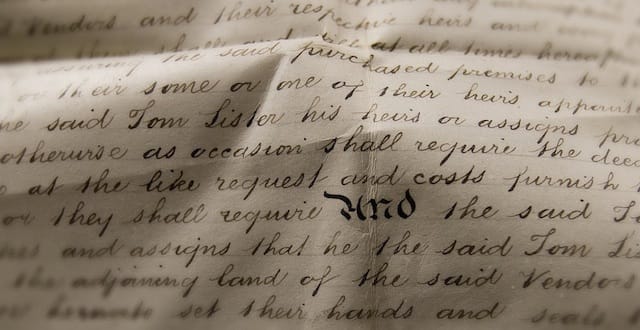 Vendors and their respective heirs and
shall and at all times
assuring the said purchased premises to
or their some or one of their heirs
said Tom Lister his heirs or assigns
otherwise as occasion shall require the
at the like request and costs furnish
or they shall require And the said
and assigns that he the said Tom
the adjoining land of the said Vendors
set their hands and seals